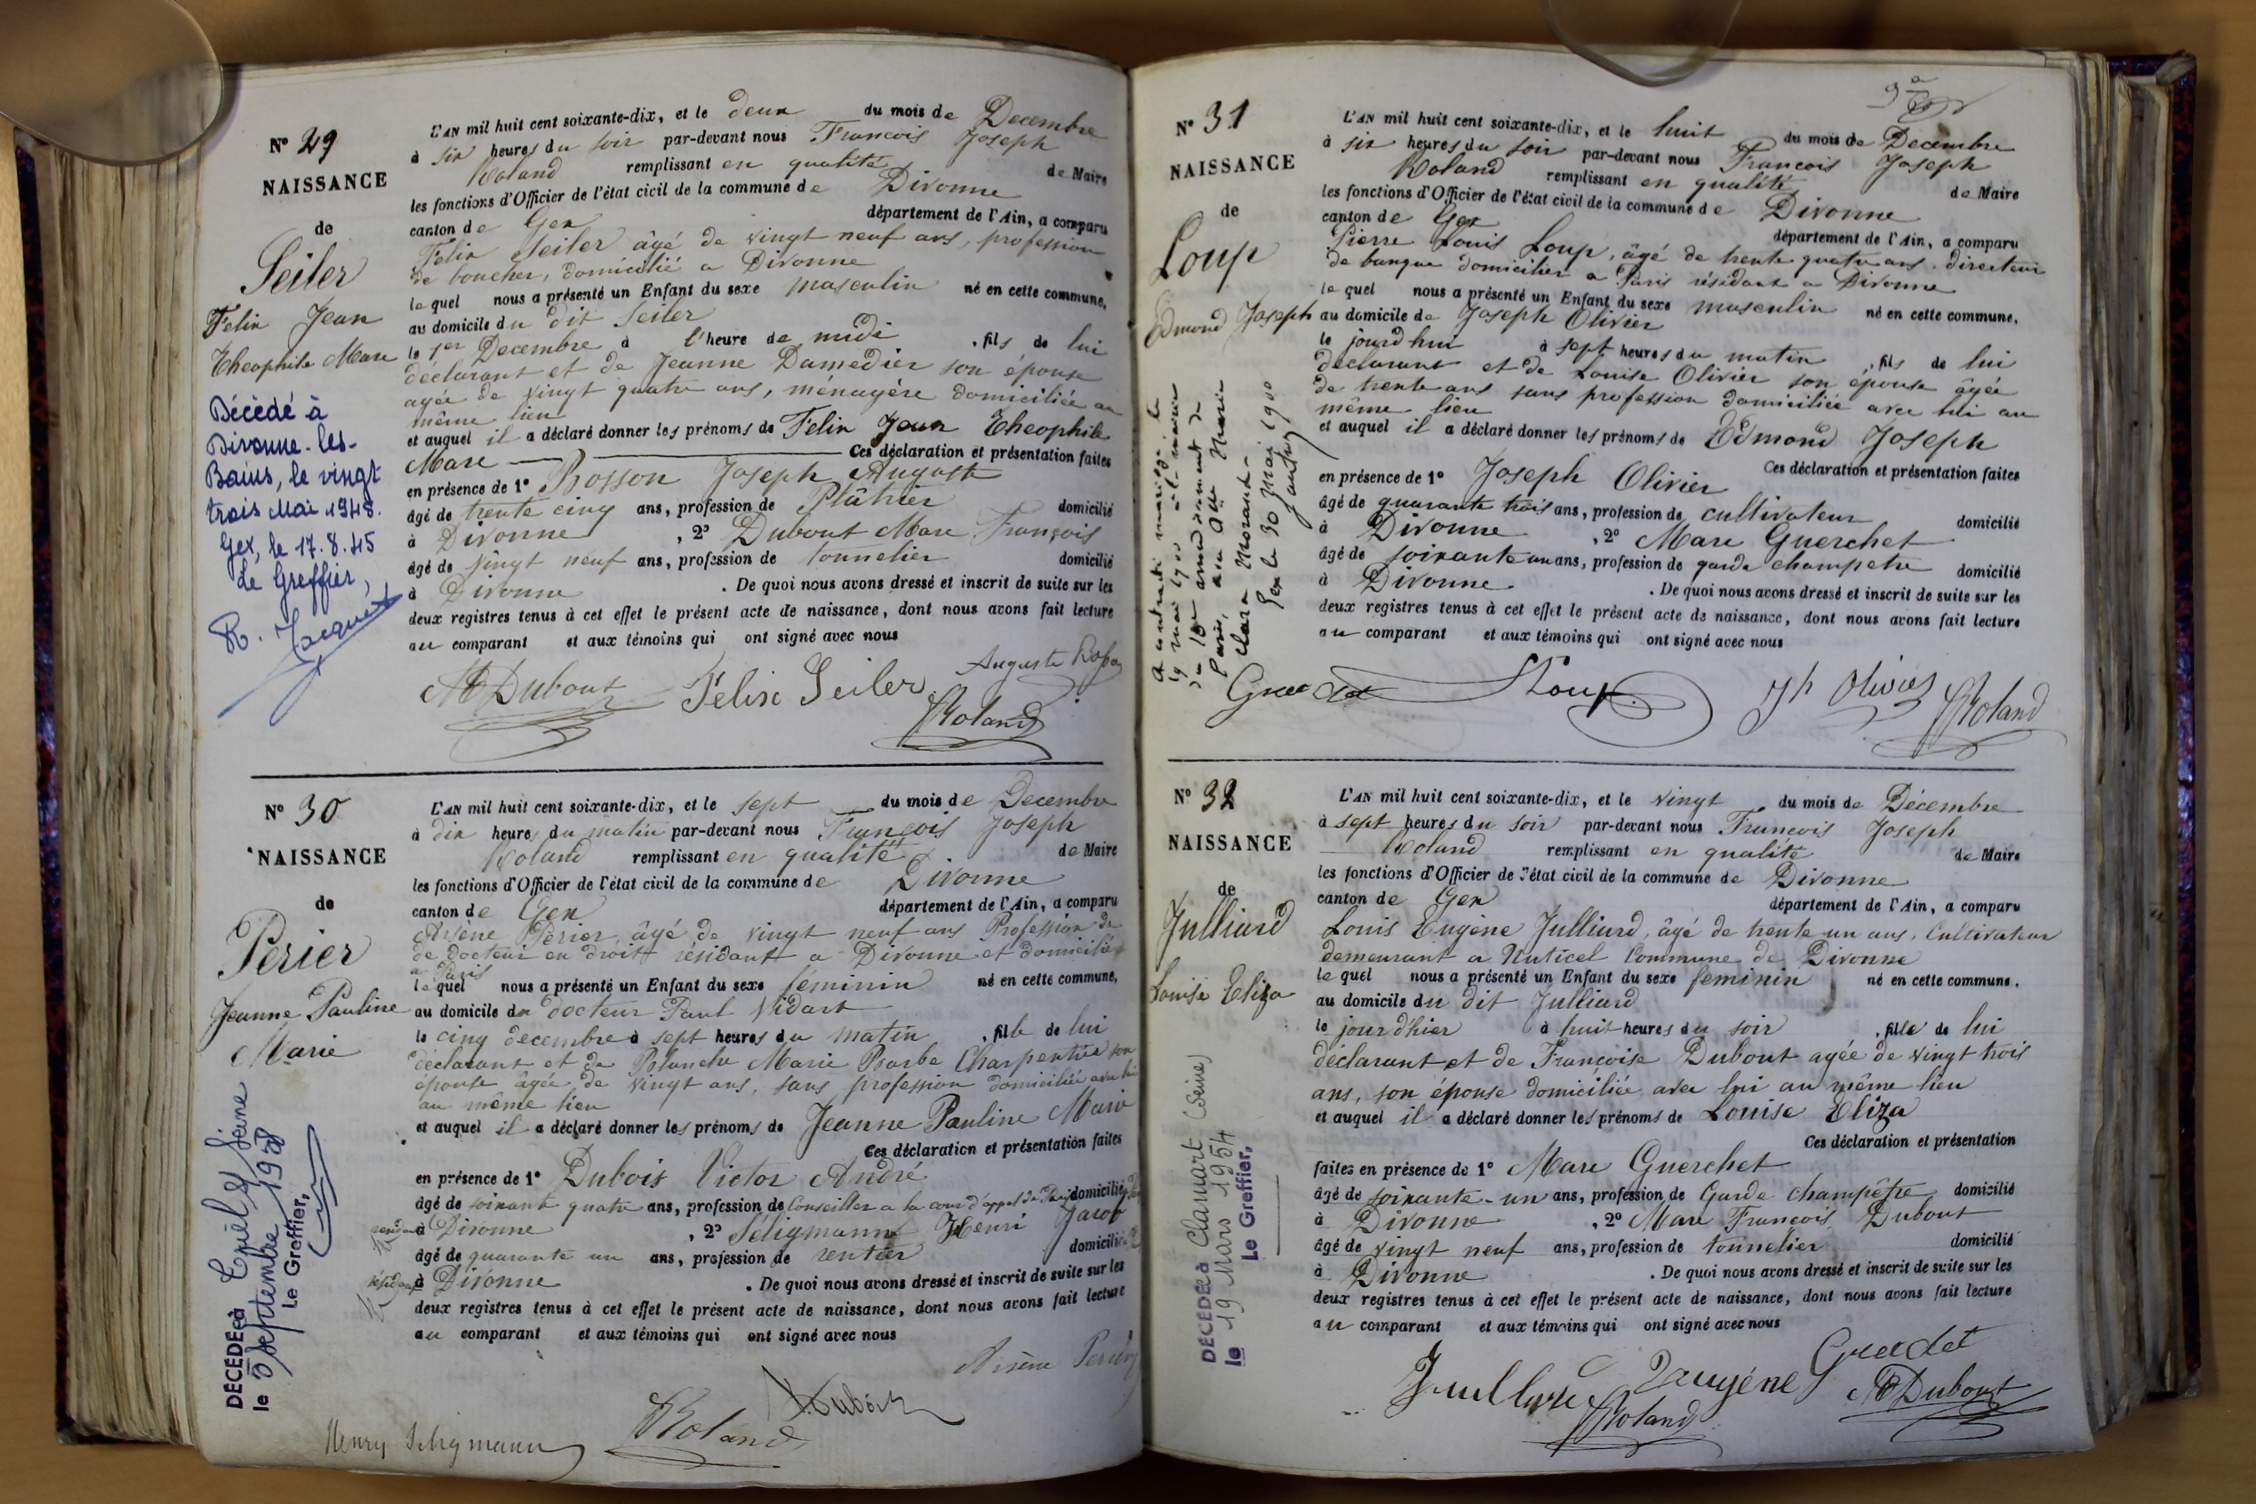 N° 29
NAISSANCE
de
Seiler
Felix Jean
Theophile Marc
Décédé à
Divonne-les-
Bains, le vingt
trois Mai 1945.
Gex, le 17.8.45
Le Greffier,
R. Jacquet
L'AN mil huit cent soixante-dix, et le deux du mois de Decembre
à six heures du soir par-devant nous Francois Joseph
Roland remplissant en qualité de Maire
les fonctions d'Officier de l'état civil de la commune de Divonne
canton de Gex département de l'Ain, a comparu
Felix Seiler âgé de vingt neuf ans, profession
de boucher, domicilié a Divonne
le quel nous a présenté un Enfant du sexe masculin né en cette commune,
au domicile du dit Seiler
le 1er Decembre à l'heure de midi , fils de lui
déclarant et de Jeanne Damedier son épouse
agée de vingt quatre ans, ménagère domiciliée au
même lieu
et auquel il a déclaré donner les prénoms de Felix Jean Theophile
Marc Ces déclaration et présentation faites
en présence de 1° Rosson Joseph Auguste
âgé de trente cinq ans, profession de Plâtrier domicilié
à Divonne , 2° Dubout Marc François
âgé de vingt neuf ans, profession de tonnelier domicilié
à Divonne . De quoi nous avons dressé et inscrit de suite sur les
deux registres tenus à cet effet le présent acte de naissance, dont nous avons fait lecture
au comparant et aux témoins qui ont signé avec nous
M Dubout Felix Seiler Auguste
Roland
N° 30
NAISSANCE
de
Périer
Jeanne Pauline
Marie
DÉCÉDÉe à Triel s/ Seine
le Septembre
Le Greffier,
L'AN mil huit cent soixante-dix, et le sept du mois de Decembre
à dix heures du matin par-devant nous François Joseph
Roland remplissant en qualité de Maire
les fonctions d'Officier de l'état civil de la commune de Divonne
canton de Gex département de l'Ain, a comparu
Arsène Périer âgé de vingt neuf ans Profession de
de docteur en droit résidant a Divonne et domicilié
a Paris
le quel nous a présenté un Enfant du sexe feminin né en cette commune,
au domicile du docteur Paul Vidart
le cinq decembre à sept heures du matin , fille de lui
déclarant et de Blanche Marie Barbe Charpentier son
épouse âgée de vingt ans, sans profession domiciliée avec lui
au même lieu
et auquel il a déclaré donner les prénoms de Jeanne Pauline Marie
Ces déclaration et présentation faites
en présence de 1° Dubois Victor André
âgé de soixante quatre ans, profession de Conseiller a la cour d'appel de Paris domicilié
à Divonne , 2° Séligmann Henri Jacob
âgé de quarante un ans, profession de rentier domicilié
résidant à Divonne . De quoi nous avons dressé et inscrit de suite sur les
deux registres tenus à cet effet le présent acte de naissance, dont nous avons fait lecture
au comparant et aux témoins qui ont signé avec nous
Arsène Périer
Dubois
Henry Seligmann Roland
N° 31
NAISSANCE
de
Loup
Edmond Joseph
A contracté mariage le
19 mai 1900 à la mairie
du 10e arrondissement de
Paris, avec Marie
Clara Morand
Gex le 30 mai 1900
L'AN mil huit cent soixante-dix, et le huit du mois de Decembre
à six heures du soir par-devant nous Francois Joseph
Roland remplissant en qualité de Maire
les fonctions d'Officier de l'état civil de la commune de Divonne
canton de Gex département de l'Ain, a comparu
Pierre Louis Loup, âgé de trente quatre ans, directeur
de banque domicilier a Paris résidant a Divonne
le quel nous a présenté un Enfant du sexe masculin né en cette commune,
au domicile de Joseph Olivier
le jourd'hui à sept heures du matin , fils de lui
déclarant et de Louise Olivier son épouse âgée
de trente ans sans profession domiciliée avec lui au
même lieu
et auquel il a déclaré donner les prénoms de Edmond Joseph
Ces déclaration et présentation faites
en présence de 1° Joseph Olivier
âgé de quarante trois ans, profession de cultivateur domicilié
à Divonne , 2° Marc Guerchet
âgé de soixante un ans, profession de garde champetre domicilié
à Divonne . De quoi nous avons dressé et inscrit de suite sur les
deux registres tenus à cet effet le présent acte de naissance, dont nous avons fait lecture
au comparant et aux témoins qui ont signé avec nous
Loup Jh Olivier Roland
N° 32
NAISSANCE
de
Julliard
Louise Eliza
DÉCÉDÉe à Clamart (Seine)
le 19 Mars 1954
Le Greffier,
L'AN mil huit cent soixante-dix, et le vingt du mois de Décembre
à sept heures du soir par-devant nous Francois Joseph
Roland remplissant en qualité de Maire
les fonctions d'Officier de l'état civil de la commune de Divonne
canton de Gex département de l'Ain, a comparu
Louis Eugène Julliard, âgé de trente un ans, Cultivateur
demeurant a Commune de Divonne
le quel nous a présenté un Enfant du sexe feminin né en cette commune,
au domicile du dit Julliard
le jour d'hier à huit heures du soir , fille de lui
déclarant et de Francoise Dubout agée de vingt trois
ans, son épouse domiciliée avec lui au même lieu
et auquel il a déclaré donner les prénoms de Louise Eliza
Ces déclaration et présentation
faites en présence de 1° Marc Guerchet
âgé de soixante-un ans, profession de Garde champêtre domicilié
à Divonne , 2° Marc François Dubout
âgé de vingt neuf ans, profession de tonnelier domicilié
à Divonne . De quoi nous avons dressé et inscrit de suite sur les
deux registres tenus à cet effet le présent acte de naissance, dont nous avons fait lecture
au comparant et aux témoins qui ont signé avec nous
Eugéne
Roland M Dubout